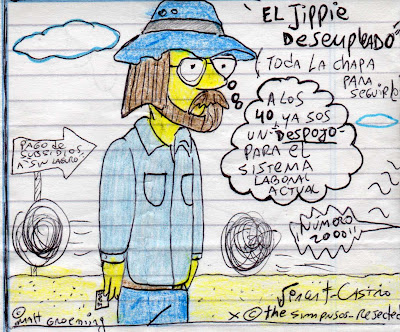 "EL JIPPIE
DESEMPLEADO"
(TODA LA CHAPA
PARA
SEGUIR!)
A LOS
40, YA SOS
UN "DESPOJO"
PARA EL
SISTEMA
LABORAL
ACTUAL
PAGO de
SUBSIDIOS
A SIN LABURO
¡NUMERO
2000!!
Castro
© Matt Groening
X © the simpsons-Rejected